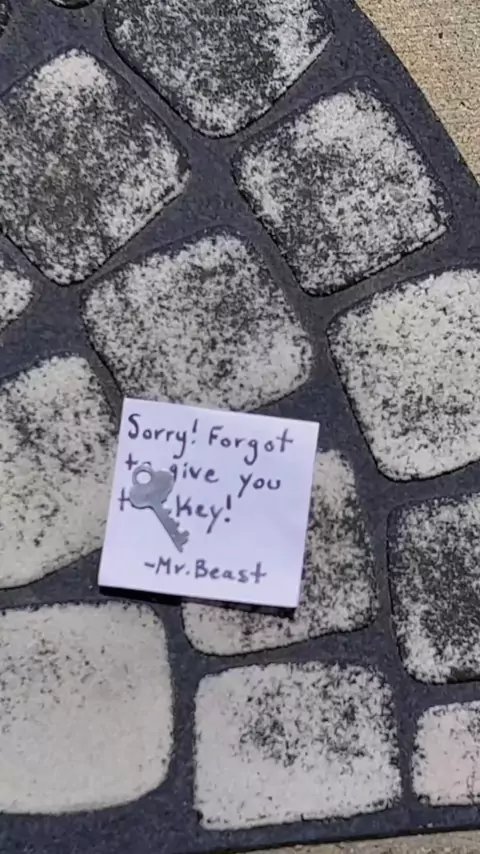 Sorry! Forgot
to give you
key!
-Mr.Beast